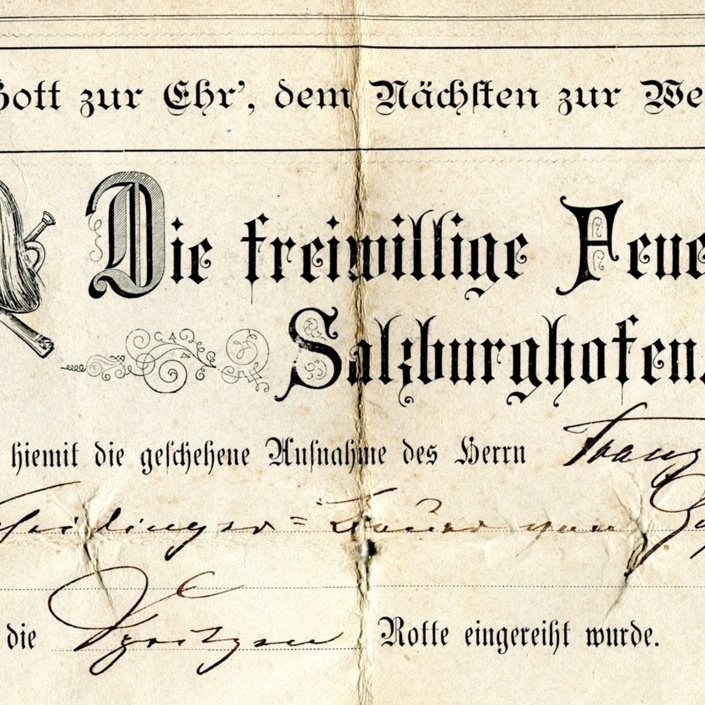 Gott zur Ehr', dem Nächsten zur We
Die freiwillige Feue
Salzburghofen.
hiemit die geschehene Aufnahme des Herrn Franz
die Spritzen Rotte eingereiht wurde.